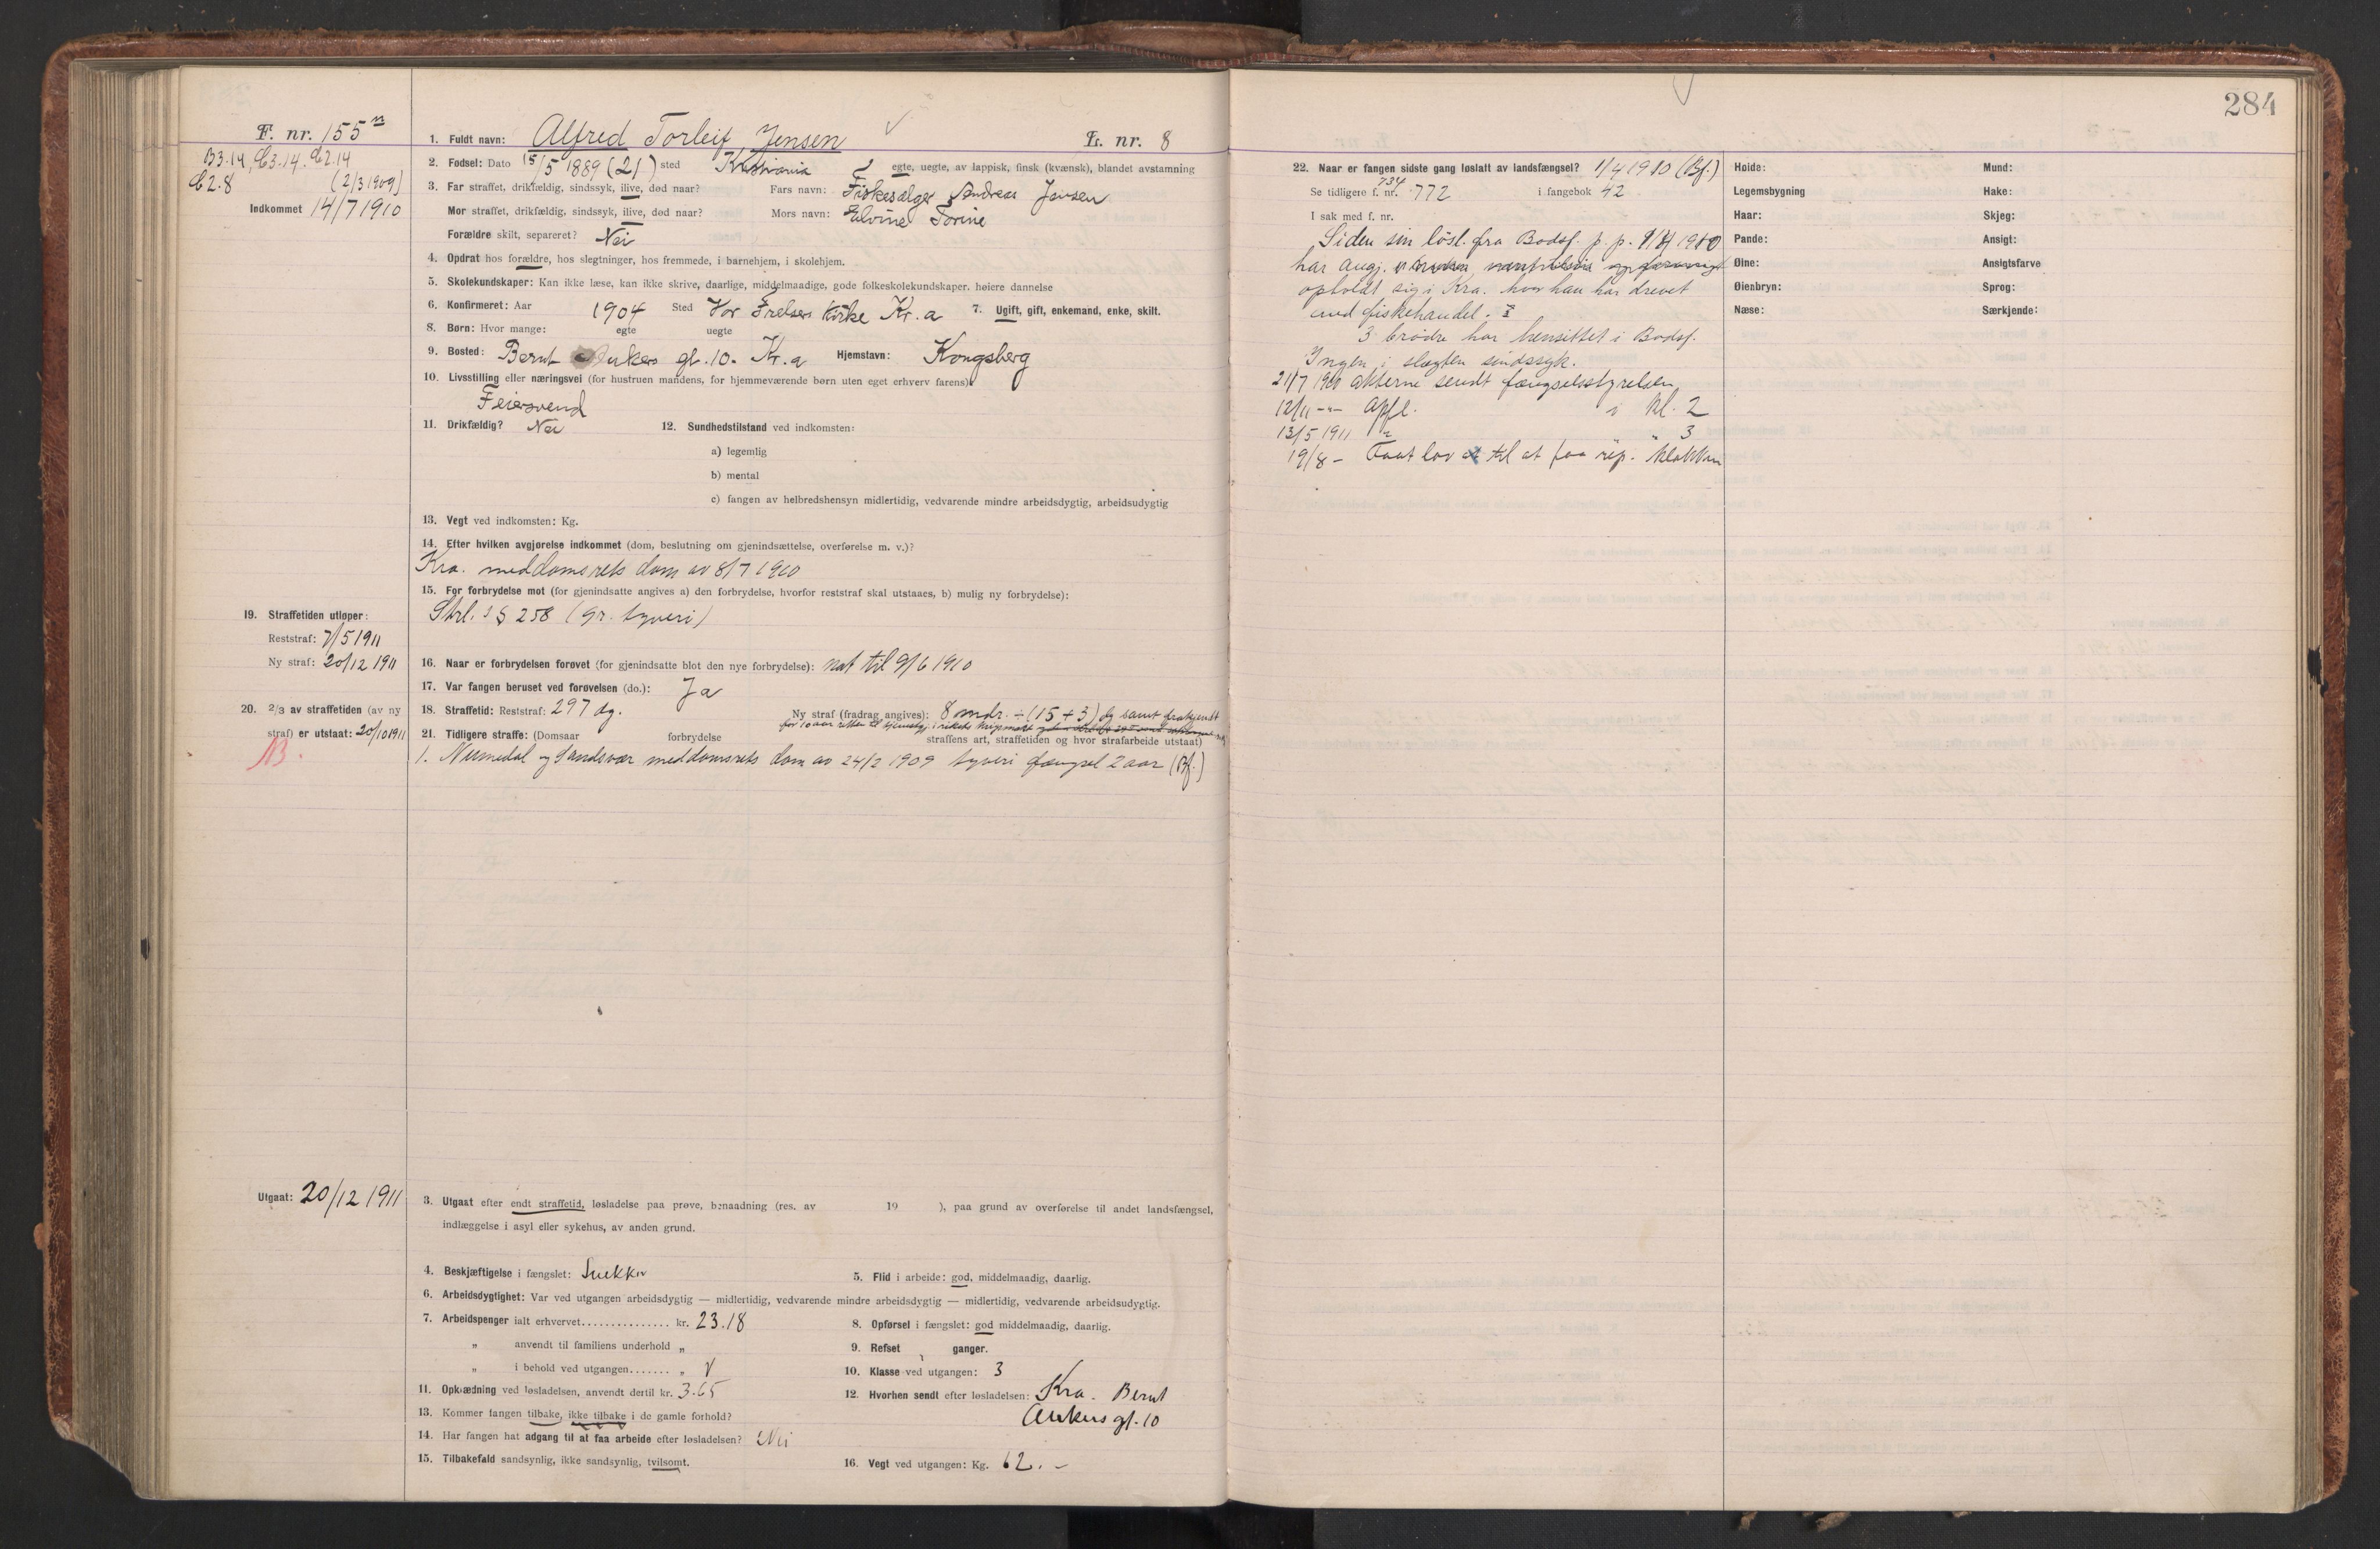 284
F. nr. 155
B3.14, C3.14. C2.14
C2.8 (2/3 1909)
Indkommet 14/7 1910
1. Fuldt navn: Alfred Torleif Jensen
L. nr. 8
2. Fødsel: Dato 15/5 1889 (21) sted Kristiania egte, uegte, av lappisk, finsk (kvænsk), blandet avstamning
3. Far straffet, drikfældig, sindssyk, ilive, død naar? Fars navn: Fiskesælger Andreas Jensen
Mor straffet, drikfældig, sindssyk, ilive, død naar? Mors navn: Elvine Torine
Forældre skilt, separeret? Nei
4. Opdrat hos forældre, hos slegtninger, hos fremmede, i barnehjem, i skolehjem.
5. Skolekundskaper: Kan ikke læse, kan ikke skrive, daarlige, middelmaadige, gode folkeskolekundskaper. høiere dannelse
6. Konfirmeret: Aar 1904 Sted Vor Frelsers Kirke Kr.a 7. Ugift, gift, enkemand, enke, skilt.
8. Børn: Hvor mange: egte uegte
9. Bosted: Bernt Ankers gt. 10. Kr.a Hjemstavn: Kongsberg
10. Livsstilling eller næringsvei (for hustruen mandens, for hjemmeværende børn uten eget erhverv farens):
Feiersvend
11. Drikfældig? Nei 12. Sundhedstilstand ved indkomsten:
a) legemlig
b) mental
c) fangen av helbredshensyn midlertidig, vedvarende mindre arbeidsdygtig, arbeidsudygtig
13. Vegt ved indkomsten: Kg.
14. Efter hvilken avgjørelse indkommet (dom, beslutning om gjenindsættelse, overførelse m. v.)?
Kra. meddomsrets dom av 8/7 1910
15. For forbrydelse mot (for gjenindsatte angives a) den forbrydelse, hvorfor reststraf skal utstaaes, b) mulig ny forbrydelse):
Strl. § 258 (gr. tyveri)
19. Straffetiden utløper:
Reststraf: 7/5 1911
Ny straf: 20/12 1911
16. Naar er forbrydelsen forøvet (for gjenindsatte blot den nye forbrydelse): nat til 9/6 1910
17. Var fangen beruset ved forøvelsen (do.): Ja
20. 2/3 av straffetiden (av ny
straf) er utstaat: 20/10 1911
18. Straffetid: Reststraf: 297 dg. Ny straf (fradrag angives): 8 mdr. ÷ (15 + 3) dg samt frakjendt
for 10 aar retten til tjeneste i rikets krigsmagt
21. Tidligere straffe: (Domsaar forbrydelse straffens art, straffetiden og hvor strafarbeide utstaat)
1. Numedal og Sandsvær meddomsrets dom av 24/2 1909 tyveri fængsel 2 aar (Bf.)
Utgaat: 20/12 1911
3. Utgaat efter endt straffetid, løsladelse paa prøve, benaadning (res. av 19 ), paa grund av overførelse til andet landsfængsel,
indlæggelse i asyl eller sykehus, av anden grund.
4. Beskjæftigelse i fængslet: Snekker 5. Flid i arbeide: god, middelmaadig, daarlig.
6. Arbeidsdygtighet: Var ved utgangen arbeidsdygtig — midlertidig, vedvarende mindre arbeidsdygtig — midlertidig, vedvarende arbeidsudygtig.
7. Arbeidspenger ialt erhvervet............... kr. 23.18 8. Opførsel i fængslet: god middelmaadig, daarlig.
„ anvendt til familiens underhold „ 9. Refset ganger.
„ i behold ved utgangen....... „ 10. Klasse ved utgangen: 3
11. Opklædning ved løsladelsen, anvendt dertil kr. 3.65 12. Hvorhen sendt efter løsladelsen: Kra. Bernt
Ankers gt. 10
13. Kommer fangen tilbake, ikke tilbake i de gamle forhold?
14. Har fangen hat adgang til at faa arbeide efter løsladelsen? Nei
15. Tilbakefald sandsynlig, ikke sandsynlig, tvilsomt. 16. Vegt ved utgangen: Kg. 62.-
22. Naar er fangen sidste gang løslatt av landsfængsel? 1/4 1910 (Bf.)
Se tidligere f. nr. 734 772 i fangebok 42
I sak med f. nr.
Siden sin løsl. fra Bodsf. p. p. 1/4 1910
har angj.
opholdt sig i Kra. hvor han har drevet
med fiskehandel.
3 brødre har hensittet i Bodsf.
Ingen i slegten sindssyk.
21/7 1910 akterne sendt fængselsstyrelsen
12/11 -"- Opfl. i Kl. 2
13/5 1911 " " 3
19/8 - Faat lov til at faa rep. klokken
Høide: Mund:
Legemsbygning Hake:
Haar: Skjeg:
Pande: Ansigt:
Øine: Ansigtsfarve
Øienbryn: Sprog:
Næse: Særkjende: